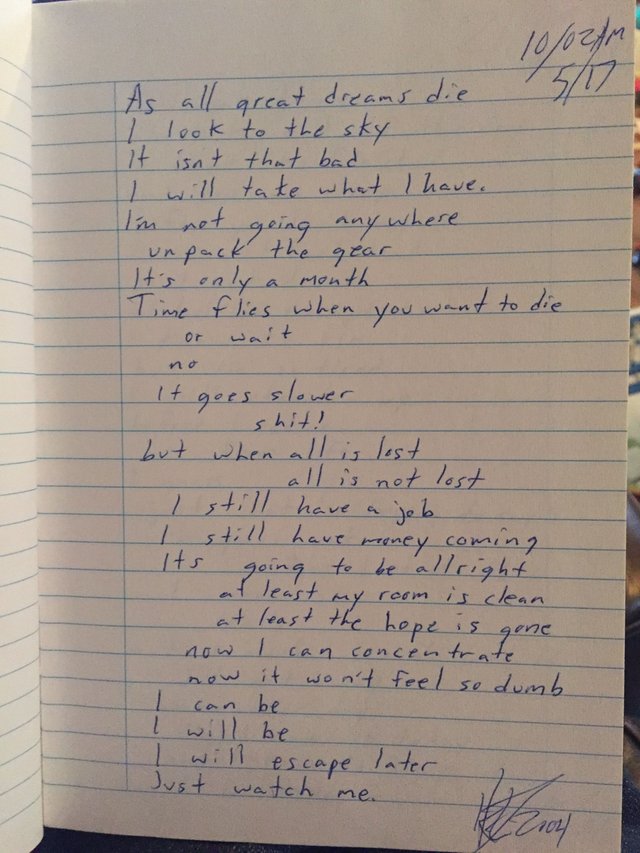 10/02AM
5/17
As all great dreams die
I look to the sky
It isnt that bad
I will take what I have.
I'm not going anywhere
unpack the gear
It's only a month
Time flies when you want to die
or wait
no
It goes slower
shit!
but when all is lost
all is not lost
I still have a job
I still have money coming
Its going to be allright
at least my room is clean
at least the hope is gone
now I can concentrate
now it won't feel so dumb
I can be
I will be
I will escape later
Just watch me.